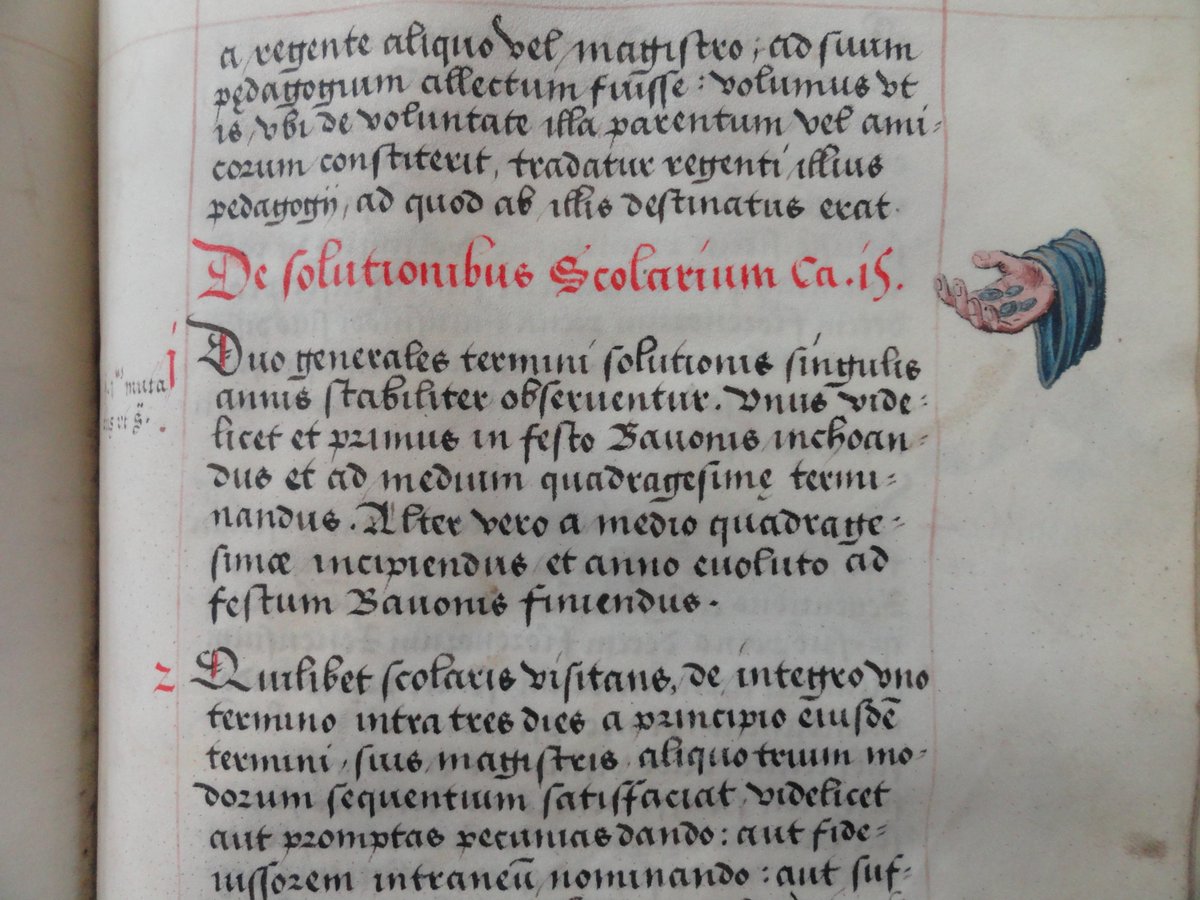 a regente aliquo vel magistro, ad suum
pędagogium allectum fuīsse: volumus vt
is, vbi de voluntate illa parentum vel ami-
corum constiterit, tradatur regenti illius
pedagogij, ad quod ab illis destinatus erat.
De solutionibus Scolarium Ca. ij.
i
Duo generales termini solutionis singulis
annis stabiliter obseruentur. Vnus vide-
muta
licet et primus in festo Bauonis inchoan-
dus et ad medium quadragesimę termi-
nandus. Alter vero a medio quadrage-
simæ incipiendus et anno euoluto ad
festum Bauonis finiendus.
2
Quilibet scolaris visitans, de integro vno
termino intra tres dies a principio eiusdē
termini, suis magistris aliquo trium mo-
dorum sequentium satisfaciat, videlicet
aut promptas pecunias dando: aut fide-
iussorem intraneū nominando: aut suf-